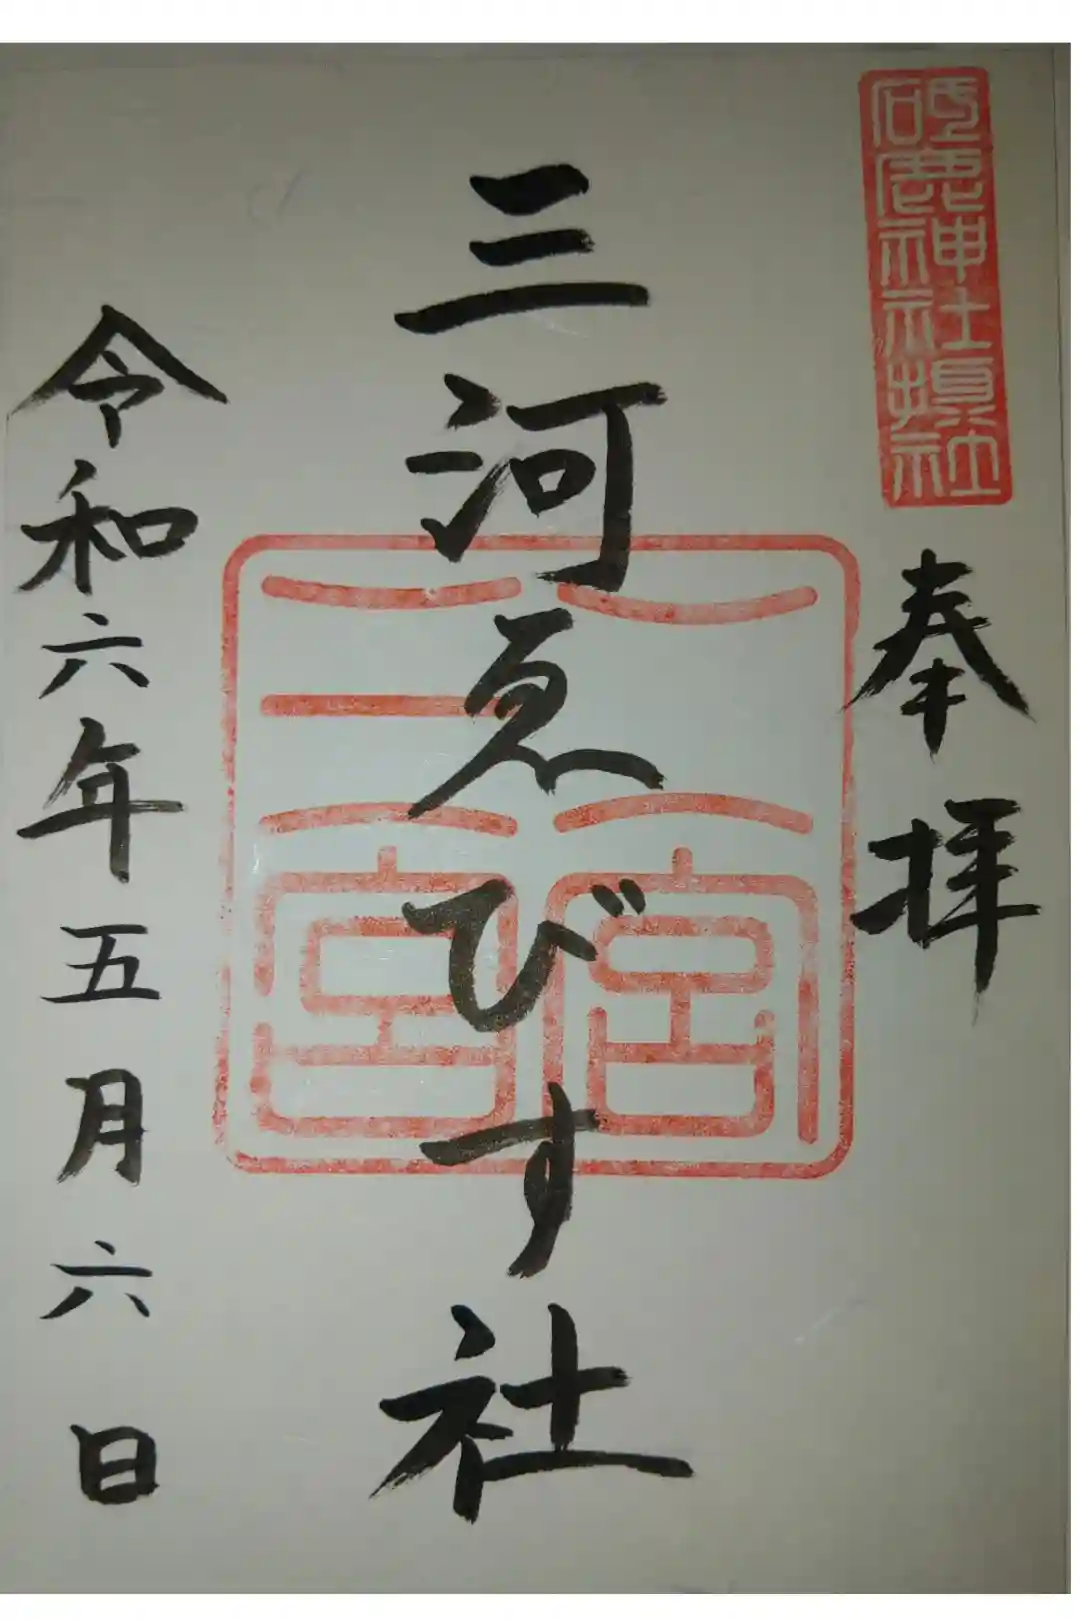 砥鹿神社境内
奉拝
三河ゑびす社
三宮
二宮
令和六年五月六日